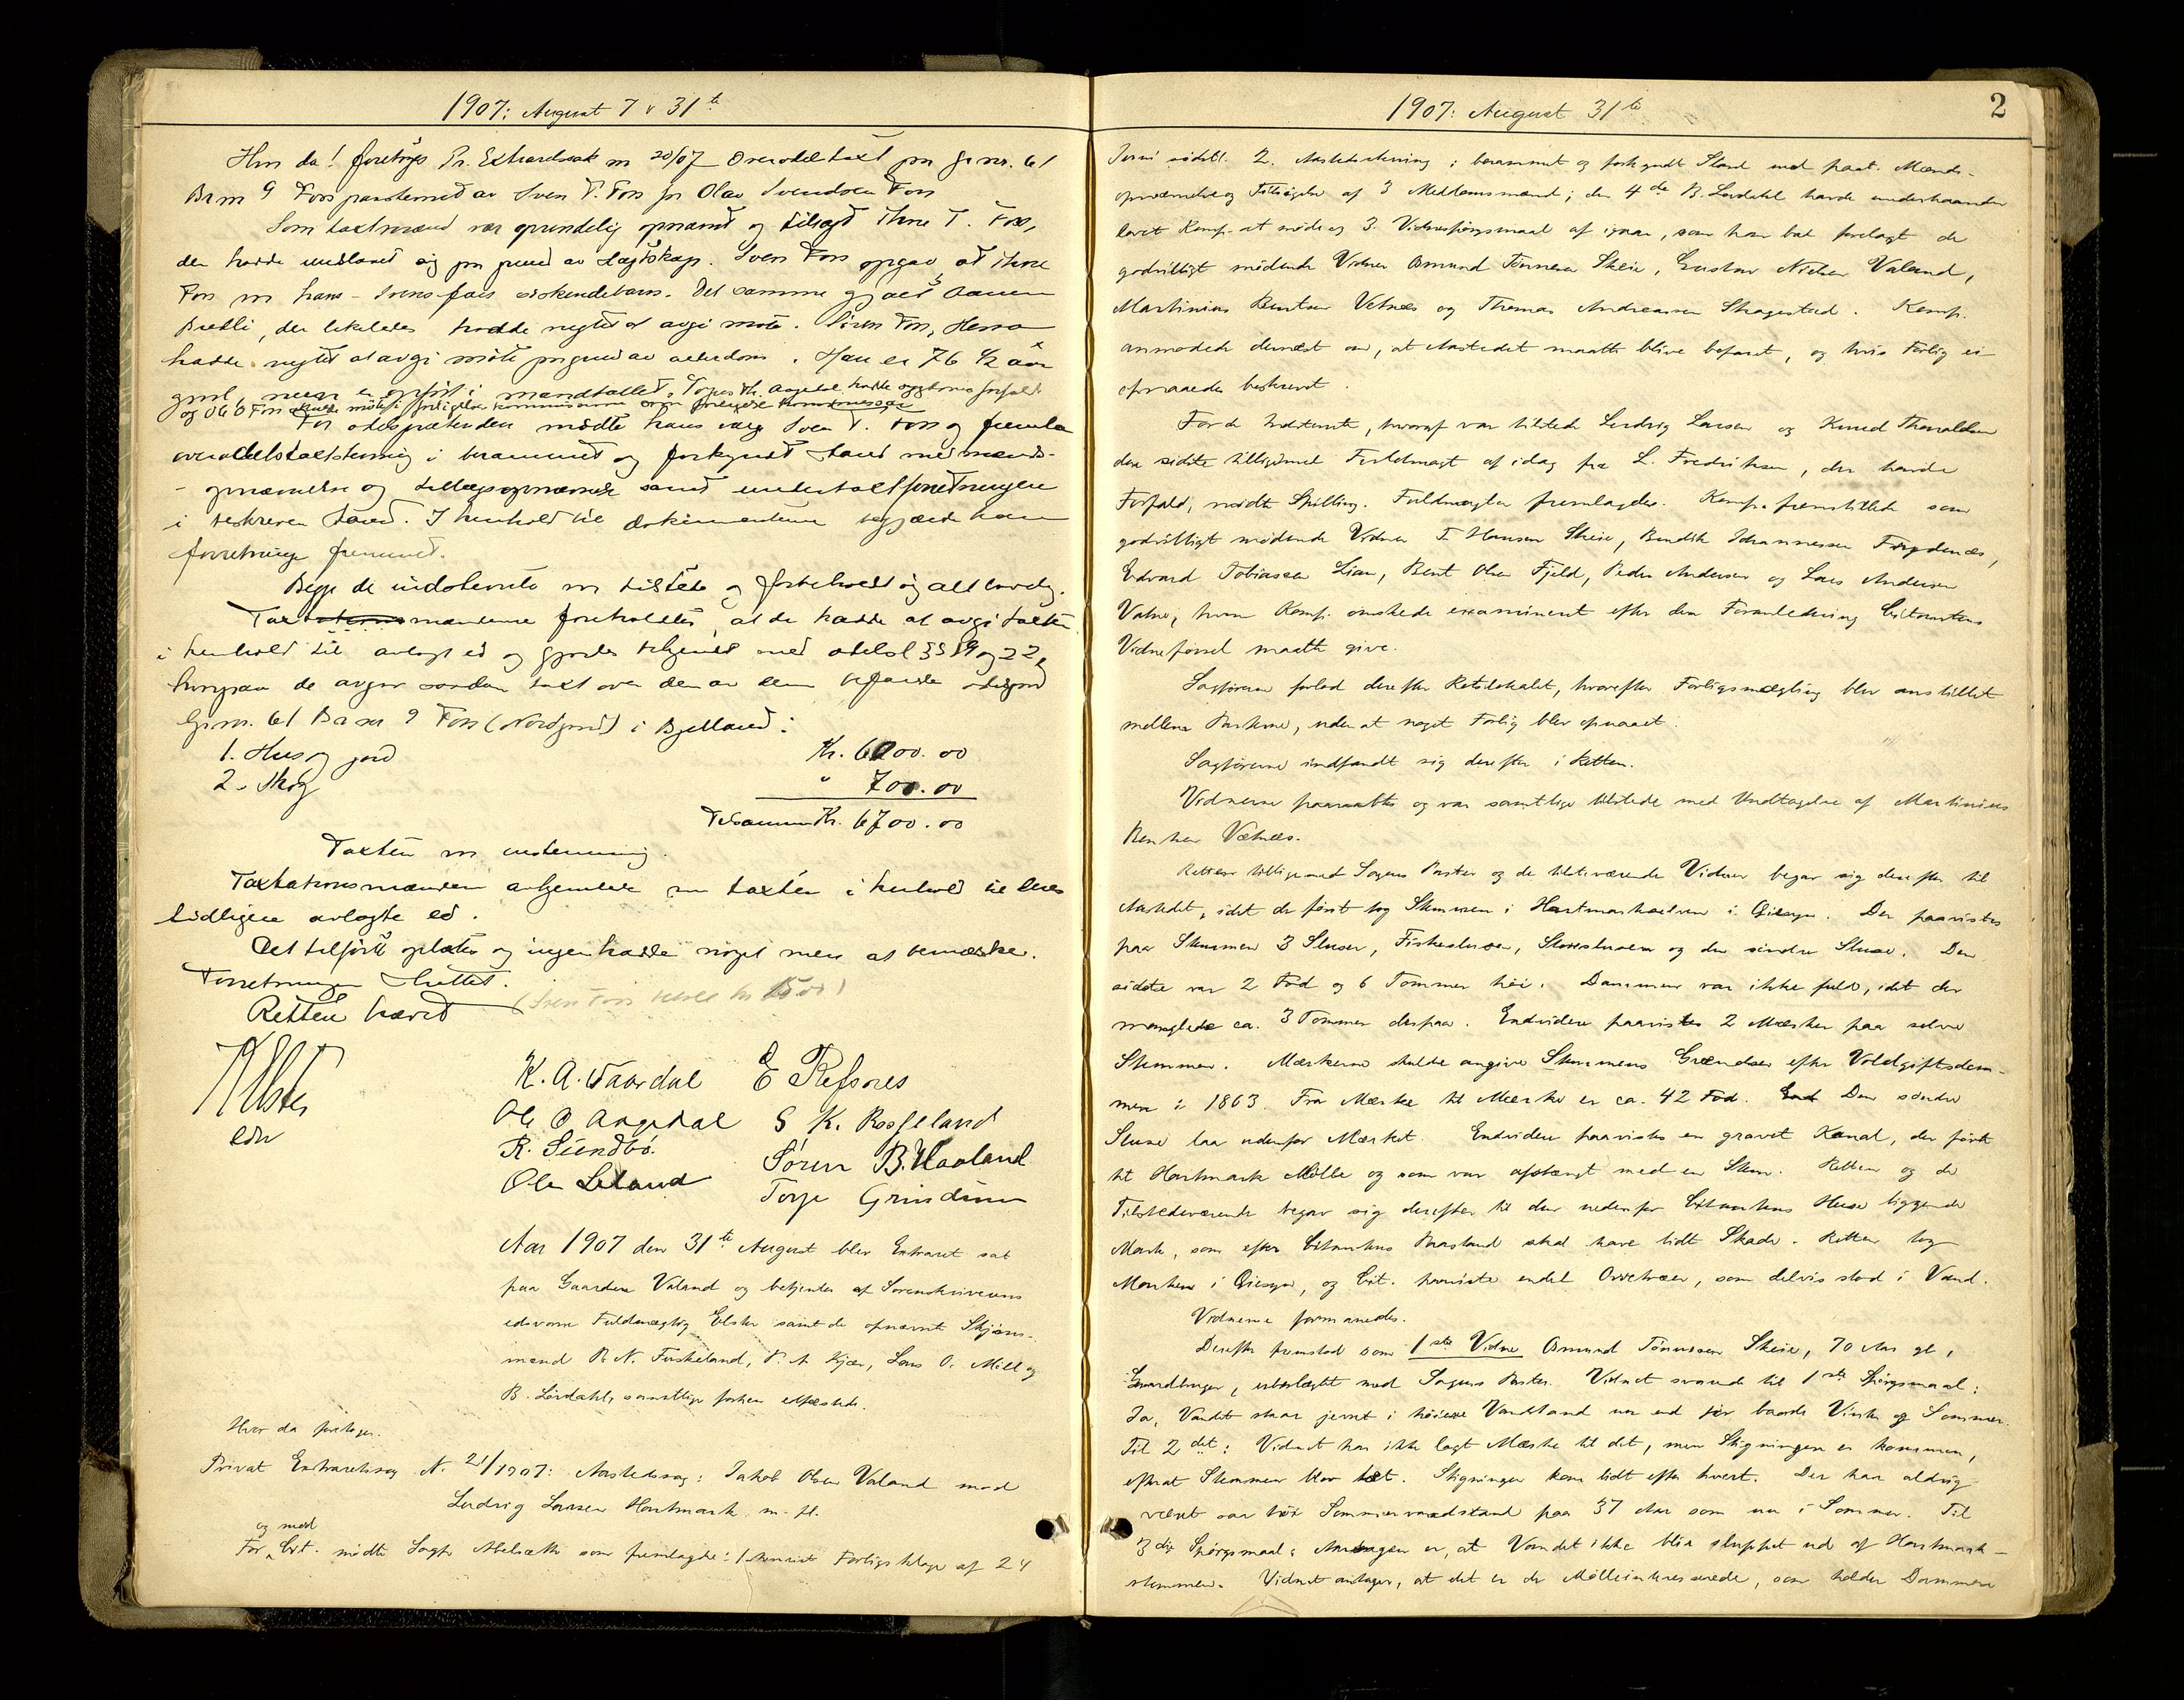 1907: August 7 & 31te
Hvor da! foretoges Pr. Extraretssak nr 20/07 Overodelstaxt paa gr nr. 61
Br nr 9 Foss paastevned av Sven T. Foss for Olav Svendsen Foss
Som taxtmænd var oprindelig opnævnt og tilsagt Thore T. Foss,
den hadde undslaaet sig paa grund av slegtskap. Sven Foss opgav, at Thore
Foss var hans - Svens fars søskendebarn. Det samme gjaldt Aanen
Breili, der likeledes hadde negtet at avgi møte. Sören Foss, Hesså
hadde negtet at avgi møte paa grund av alderdom. Han er 76 1/2 aar
gml, men er opført i mandtallet. Torjus Th. Aagedal hadde opgit forfald
og Ole O Foss skulde møte i forligelseskommissionen
For odelsprætenden mødte hans verge Sven T. Foss og fremla
overodelstaxtstevning i berammet og forkyndt stand med mænds-
- opnævnelse og tillægsopnævnelse samt undertaxtforretningen
i beskreven stand. I henhold til dokumenterne begjærte han
forretninge fremmet.
Begge de indstevnte var tilstede og forbeholdt sig alt lovlig.
Taxtmændene foreholdtes, at de hadde at avgi taxten
i henhold til avlagt ed og gjordes bekjendt med odelsl §§ 19 og 22,
hvorpaa de avgav saadan taxt over den av dem befarede odelsjord
Gr nr. 61 Br nr 9 Foss (Nordgard) i Bjelland:
1. Hus og jord Kr. 6000.00
2. Skog " 700.00
Tilsammen Kr. 6700.00
Taxten var enstemmig.
Taxtationsmændene avhjemlede nu taxten i henhold til deres
tidligere avlagte ed.
Det tilførte oplæstes og ingen hadde noget mere at bemærke.
Forretningen sluttet.
Retten hævet (Sven Foss betalt kr 15.00)
Elster
edsv
K. A. Vaardal E Refsnes
Ole O Aagedal S K. Rosseland
R. Sundbö. Sören B. Haaland
Ole Leland Torje Grindum
Aar 1907 den 31te August blev Extraret sat
paa Gaarden Valand og betjentes af Sorenskriverens
edsvorne Fuldmægtig Elster samt de opnævnte Skjøns-
mænd P. N. Fuskeland, P. A Kjær, Lars O. Mill og
B. Lördahl, samtlige forhen edfæstede.
Hvor da foretoges.
Privat Extraretssag N. 21/1907: Aastedssag: Jakob Olsen Valand mod
Ludvig Larsen Hartmark m. fl.
For og med Cit. mødte Sagf. Abelsæth som fremlagde: 1. henvist Forligsklage af 24

1907: August 31te
2
Juni sidstl. 2. Aastedsstevning i berammet og forkyndt Stand med paat. Mænds-
opnævnelse og Tilsigelse af 3 Meddomsmænd; den 4de B. Lordahl havde underhaanden
lovet Komp. at møde og 3. Vidnespørgsmaal af igaar, som han bad forelagt de
godvilligt mødende Vidner Osmund Tønnesen Skeie, Gustav Nielsen Valand,
Martinius Bentsen Vetnes og Thomas Andreassen Skagestad. Komp.
anmodede dernæst om, at Aastedet maatte blive befaret, og hvis Forlig ei
opnaaedes beskrevet.
For de Indstevnte, hvoraf var tilstede Ludvig Larsen og Knud Thoraldsen
den sidste tilligemed Fuldmagt af idag fra L. Fredriksen, der havde
Forfald, mødte Spilling. Fuldmagten fremlagdes. Komp. fremstillede som
godvilligt mødende Vidner T. Hansen Skeie, Bendik Johannessen Frydenæs,
Edvard Tobiassen Lian, Bent Olsen Fjeld, Peder Andersen og Lars Andersen
Vatne, hvem Komp. ønskede examineret efter den Foranledning Citantens
Vidneførsel maatte give.
Sagførerne forlod derefter Retslokalet, hvorefter Forligsmægling blev anstillet
mellem Parterne, uden at noget Forlig blev opnaaet.
Sagførerne indfandt sig derefter i Retten.
Vidnerne paaraabtes og var samtlige tilstede med Undtagelse af Martinius
Bentsen Vætnes.
Retten tilligemed Sagens Parter og de tilstedeværende Vidner begav sig derefter til
Aastedet, idet de først tog Stemmen i Hartmarkselven i Øiesyn. Der paavistes
paa Stemmen 3 Sluser, Fiskeslusen, Storeslusen og den søndre Sluse. Den
sidste var 2 Fod og 6 Tommer høi. Dammen var ikke fuld, idet der
manglede ca. 3 Tommer derpaa. Endvidere paavistes 2 Mærker paa selve
Stemmen. Mærkerne skulde angive Stemmens Grændser efter Voldgiftsdom-
men i 1863. Fra Mærke til Mærke er ca. 42 Fod. Den søndre
Sluse laa udenfor Mærket. Endvidere paavistes en gravet Kanal, der førte
til Hartmark Mølle og som var afstængt med en Stem. Retten og de
Tilstedeværende begav sig derefter til den nedenfor Citantens Huse liggende
Mark, som efter Citantens Paastand skal have lidt Skade. Retten tog
Marken i Øiesyn, og Cit. paaviste endel Orretræer, som delvis stod i Vand.
Vidnerne formanedes.
Derefter fremstod som 1ste Vidne Osmund Tönnessen Skeie, 70 Aar gl.,
Gaardbruger, ubeslægtet med Sagens Parter. Vidnet svarede til 1ste Spørgsmaal:
Ja, Vandet staar jevnt i høiere Vandstand nu end før baade Vinter og Sommer.
Til 2det: Vidnet har ikke lagt Mærke til det, men Stigningen er kommen,
efterat Stemmen blev tæt. Stigningen kom lidt efter hvert. Der har aldrig
været saa høi Sommervandstand paa 37 Aar som nu i Sommer. Til
3die Spørgsmaal: Aarsagen er, at Vandet ikke blir sluppet ud af Hartmark-
stemmen. Vidnet antager, at det er de Mølleinteresserede, som holder Dammen